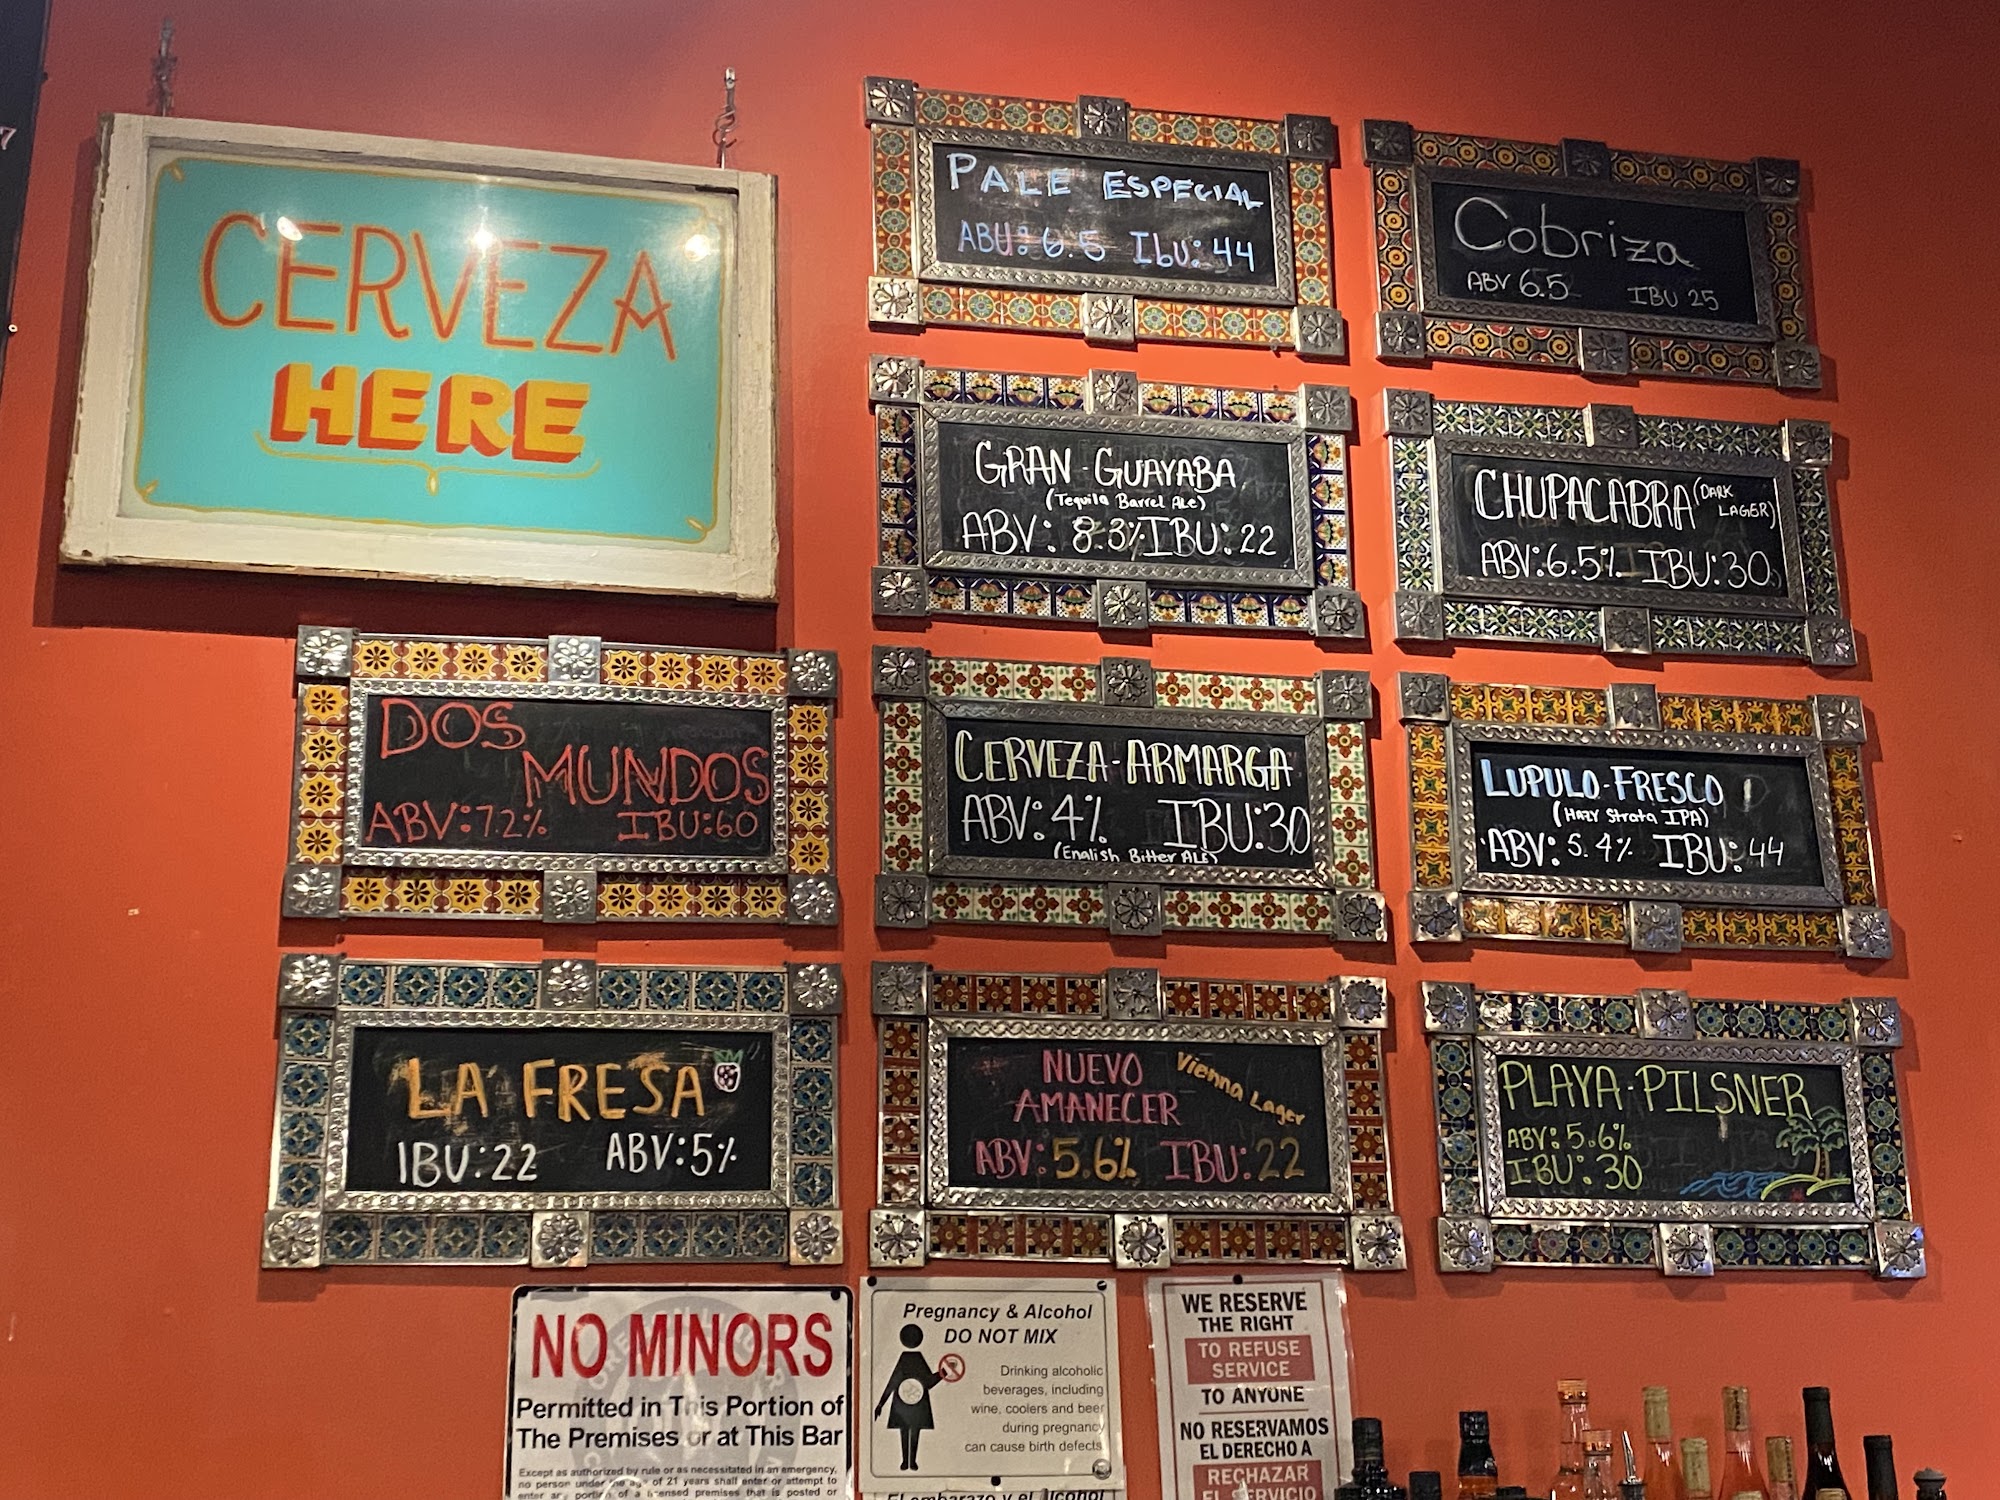 CERVEZA
HERE
PALE ESPECIAL
ABU: 6.5 Ibu: 44
Cobriza
ABV 6.5 IBU 25
GRAN-GUAYABA
(Tequila Barrel Ale)
ABV: 8.3% IBU: 22
CHUPACABRA (DARK
LAGER)
ABV: 6.5% IBU: 30
DOS
MUNDOS
ABV: 7.2% IBU: 60
CERVEZA-ARMARGA
ABV: 4% IBU: 30
(English Bitter ALE)
LUPULO-FRESCO
(HAZY Strata IPA)
ABV: 5.4% IBU: 44
LA FRESA
IBU: 22 ABV: 5%
NUEVO
AMANECER
Vienna Lager
ABV: 5.6% IBU: 22
PLAYA-PILSNER
ABV: 5.6%
IBU: 30
NO MINORS
Permitted in This Portion of
The Premises or at This Bar
Except as authorized by rule or as necessitated in an emergency,
no person under the age of 21 years shall enter or attempt to
enter any portion of a licensed premises that is posted or
Pregnancy & Alcohol
DO NOT MIX
Drinking alcoholic
beverages, including
wine, coolers and beer
during pregnancy
can cause birth defects.
El embarazo y el alcohol
WE RESERVE
THE RIGHT
TO REFUSE
SERVICE
TO ANYONE
NO RESERVAMOS
EL DERECHO A
RECHAZAR
EL SERVICIO